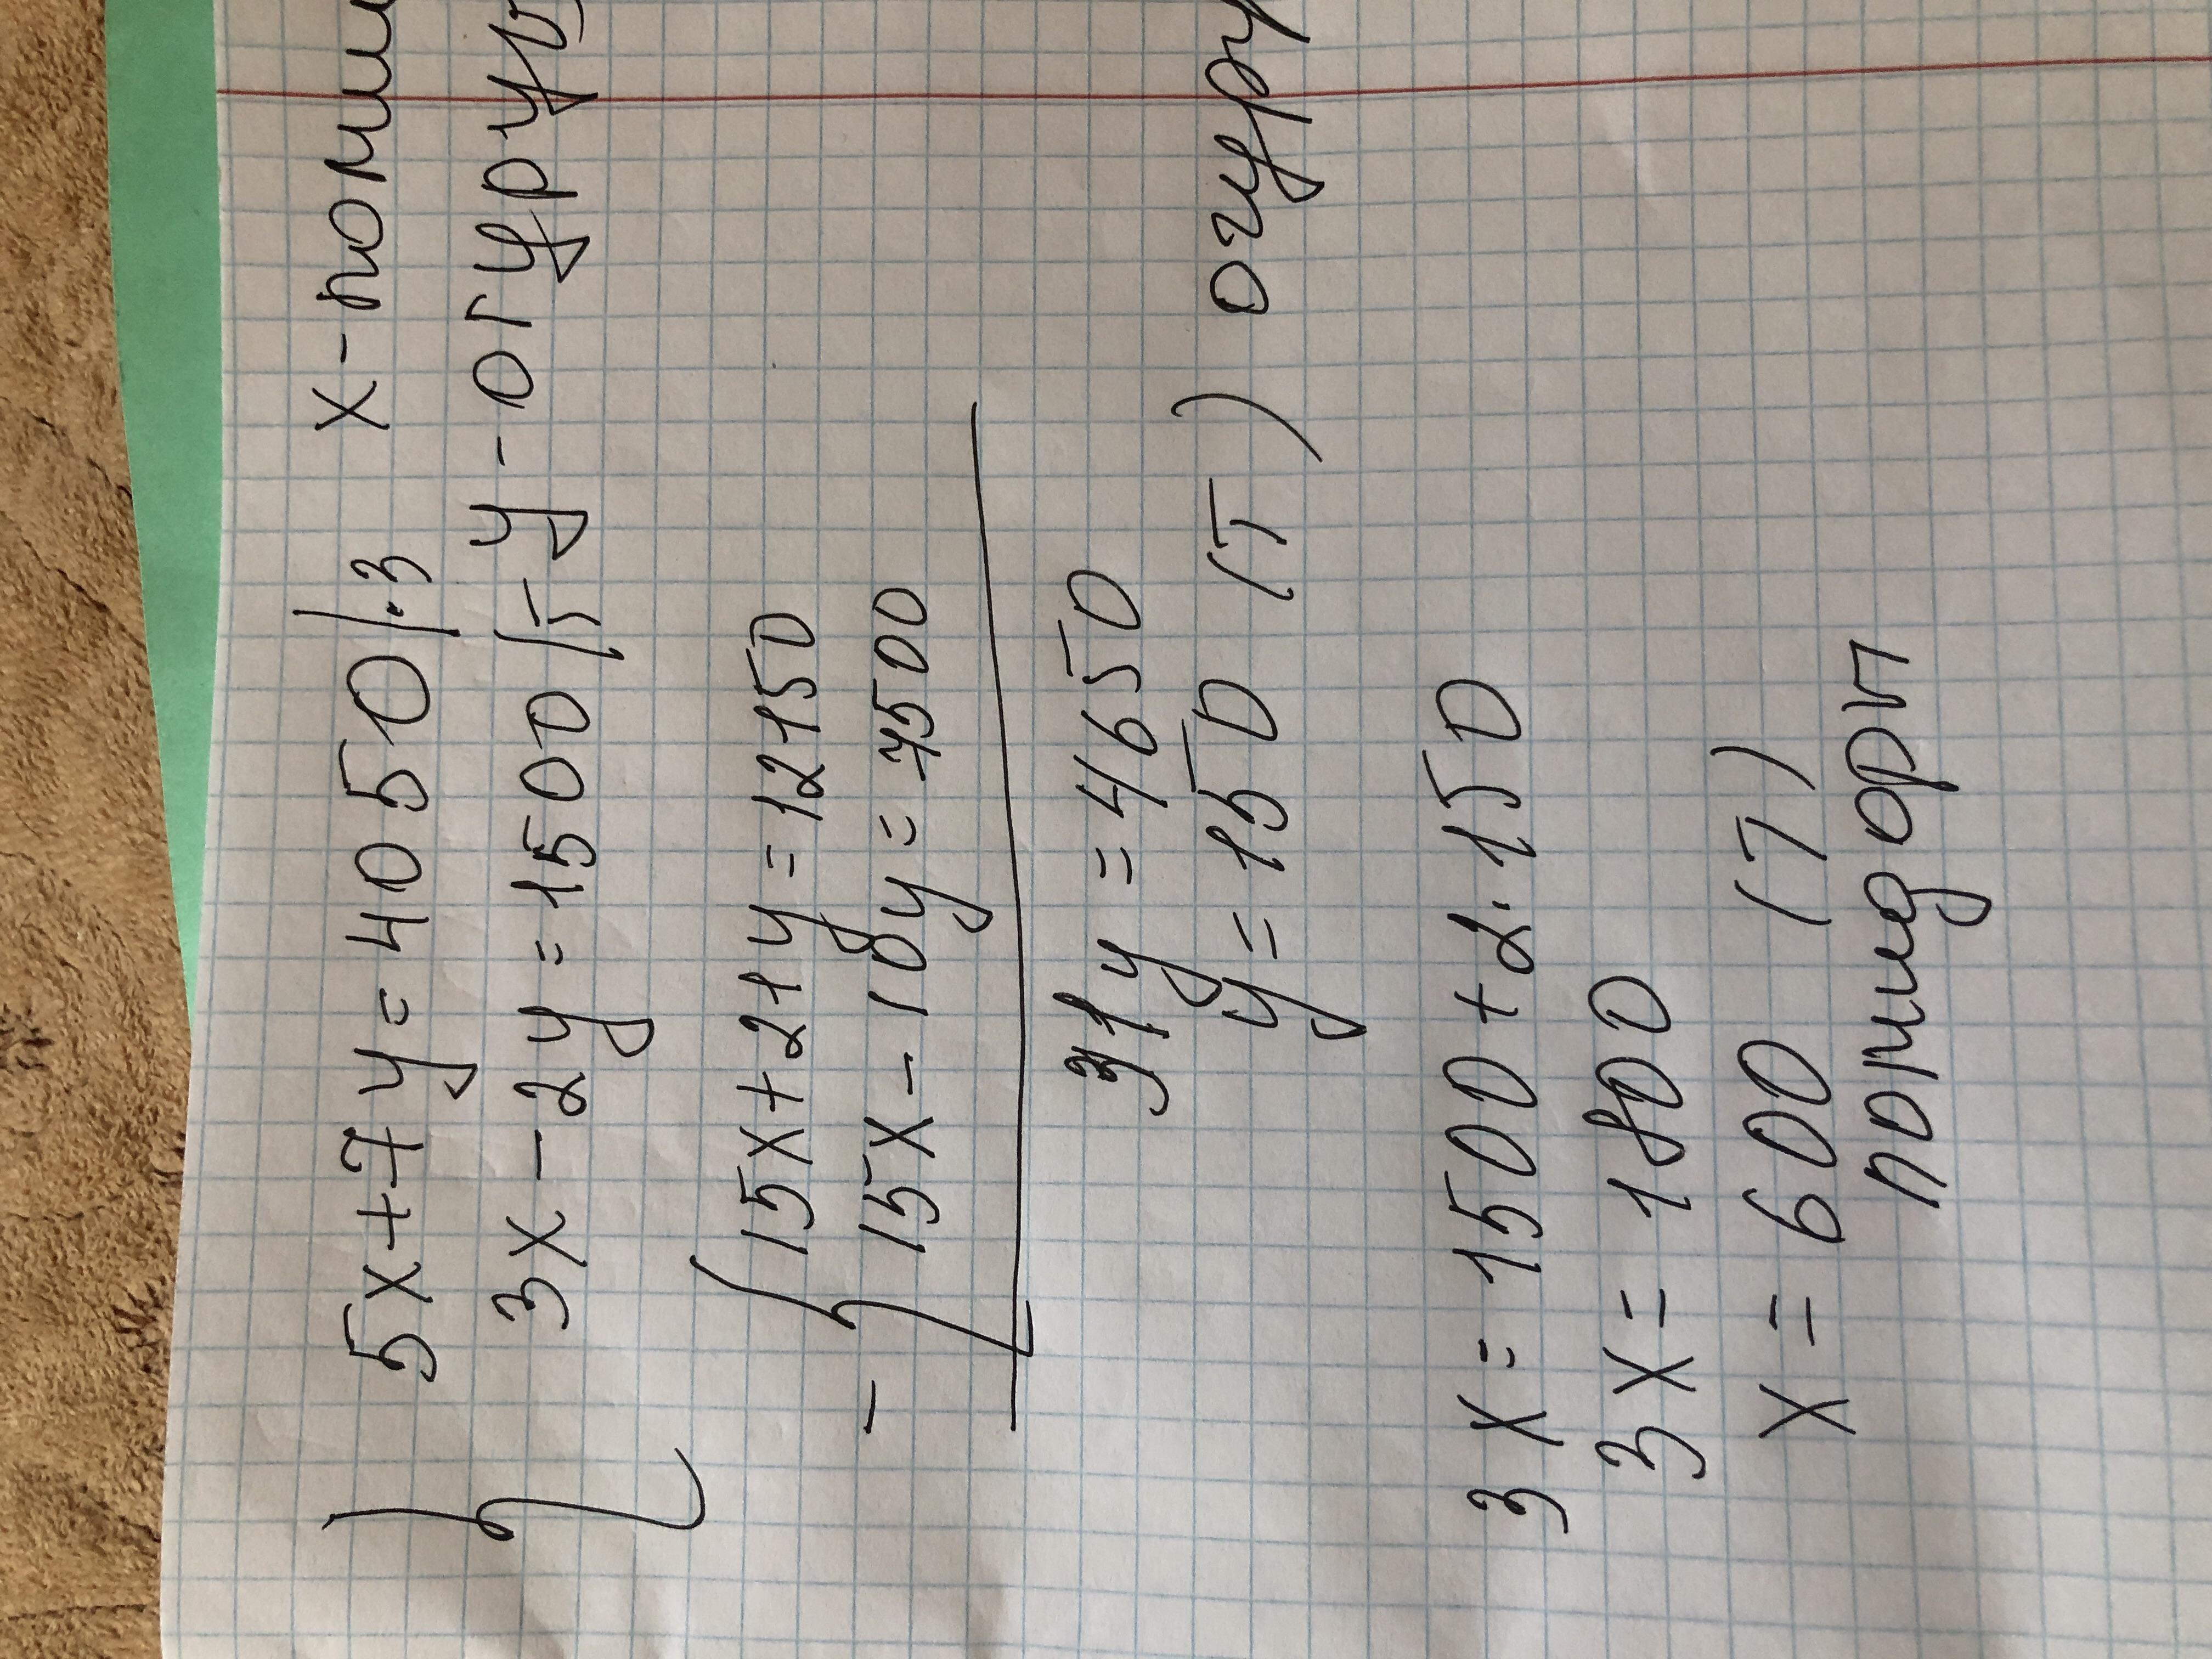 5x+7y=4050|·3 x-поми
3x-2y=1500|5 y-огурцы
15x+21y=12150
- 15x-10y=7500
31y=4650
y=150 (т) огур
3x=1500+2·150
3x=1800
x=600 (т)
помидоры